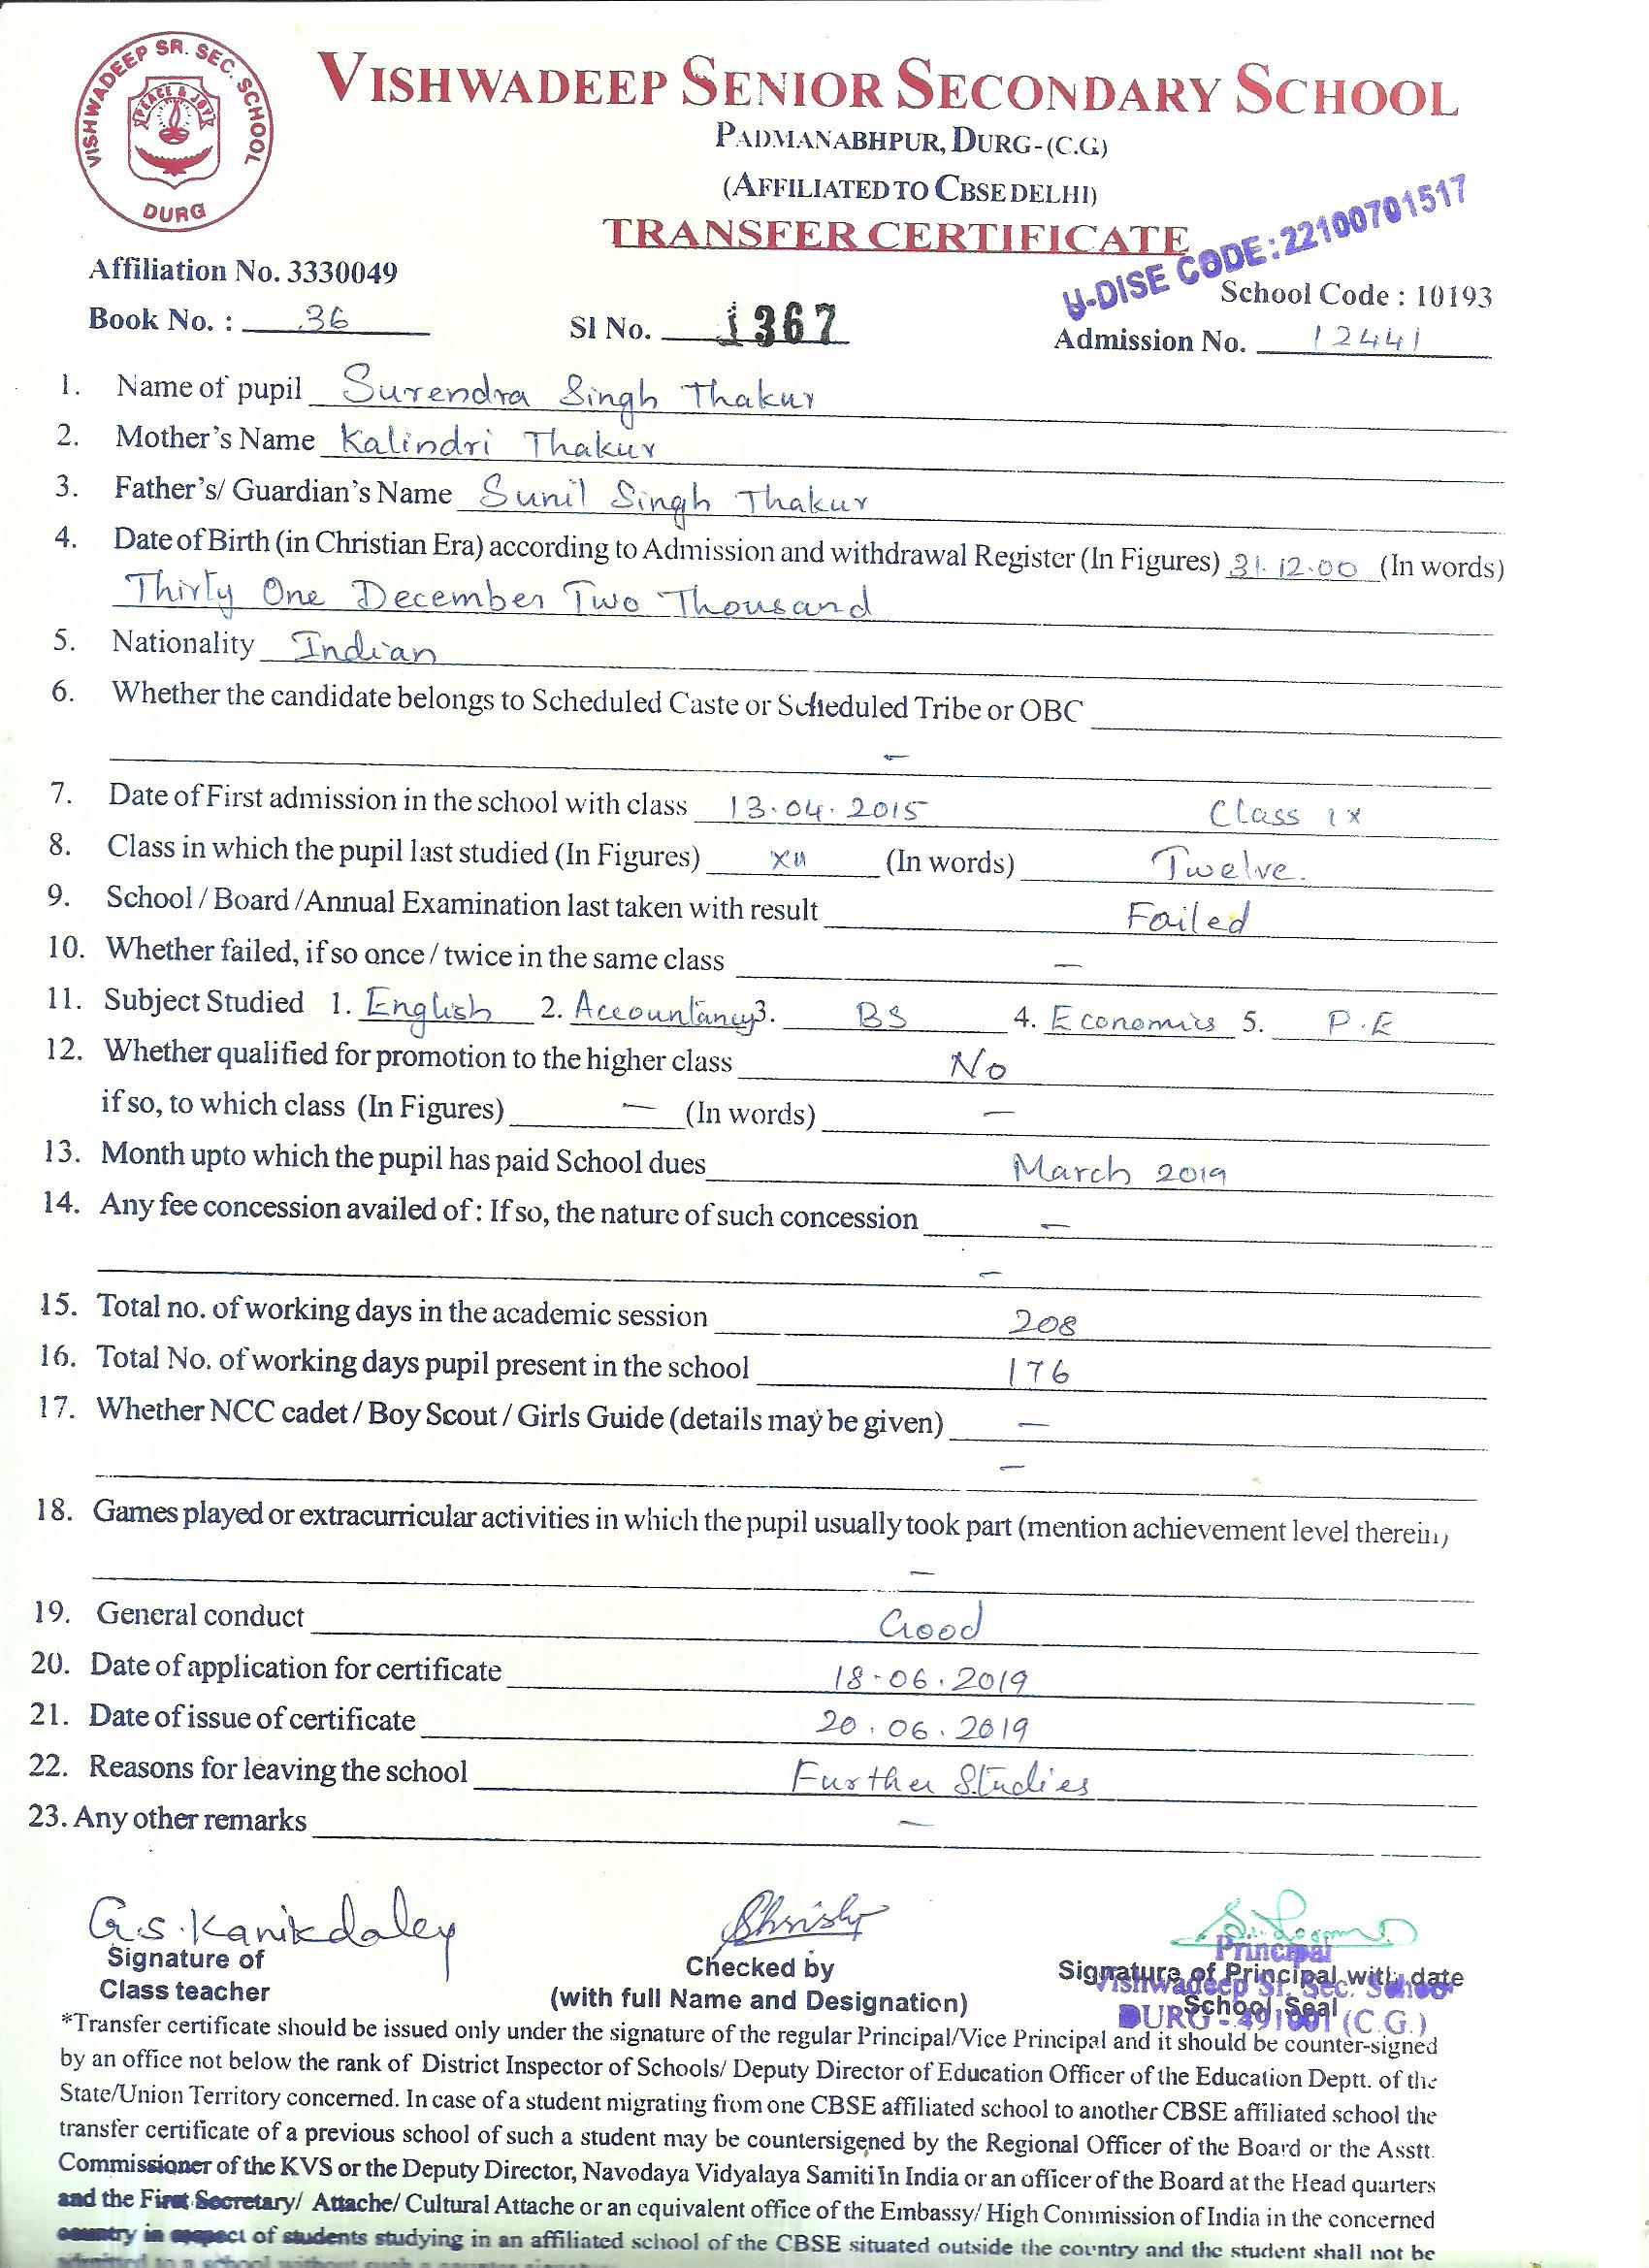 VISHWADEEP SR. SEC. SCHOOL
PEACE & JOY
DURG
VISHWADEEP SENIOR SECONDARY SCHOOL
PADMANABHPUR, DURG-(C.G)
(AFFILIATED TO CBSE DELHI)
TRANSFER CERTIFICATE
U-DISE CODE:22100701517
Affiliation No. 3330049
School Code : 10193
Book No. : 36 Sl No. 1367 Admission No. 12441
1. Name of pupil Surendra Singh Thakur
2. Mother's Name Kalindri Thakur
3. Father's/ Guardian's Name Sunil Singh Thakur
4. Date of Birth (in Christian Era) according to Admission and withdrawal Register (In Figures) 31.12.00 (In words)
Thirty One December Two Thousand
5. Nationality Indian
6. Whether the candidate belongs to Scheduled Caste or Scheduled Tribe or OBC
—
7. Date of First admission in the school with class 13.04.2015 Class IX
8. Class in which the pupil last studied (In Figures) XII (In words) Twelve.
9. School / Board /Annual Examination last taken with result Failed
10. Whether failed, if so once / twice in the same class —
11. Subject Studied 1. English 2. Accountancy 3. BS 4. Economics 5. P.E
12. Whether qualified for promotion to the higher class No
if so, to which class (In Figures) — (In words) —
13. Month upto which the pupil has paid School dues March 2019
14. Any fee concession availed of : If so, the nature of such concession —
—
15. Total no. of working days in the academic session 208
16. Total No. of working days pupil present in the school 176
17. Whether NCC cadet / Boy Scout / Girls Guide (details may be given) —
—
18. Games played or extracurricular activities in which the pupil usually took part (mention achievement level therein)
—
19. General conduct Good
20. Date of application for certificate 18-06.2019
21. Date of issue of certificate 20.06.2019
22. Reasons for leaving the school Further Studies
23. Any other remarks —
G.S. Kanikdaley
Principal
Signature of Checked by Signature of Principal with date
Vishwadeep Sr. Sec. School
Class teacher (with full Name and Designation) School Seal
DURG - 491001 (C.G.)
*Transfer certificate should be issued only under the signature of the regular Principal/Vice Principal and it should be counter-signed
by an office not below the rank of District Inspector of Schools/ Deputy Director of Education Officer of the Education Deptt. of the
State/Union Territory concerned. In case of a student migrating from one CBSE affiliated school to another CBSE affiliated school the
transfer certificate of a previous school of such a student may be countersigened by the Regional Officer of the Board or the Asstt.
Commissioner of the KVS or the Deputy Director, Navodaya Vidyalaya Samiti In India or an officer of the Board at the Head quarters
and the First Secretary/ Attache/ Cultural Attache or an equivalent office of the Embassy/ High Commission of India in the concerned
country in respect of students studying in an affiliated school of the CBSE situated outside the country and the student shall not be
admitted to a school without such a counter